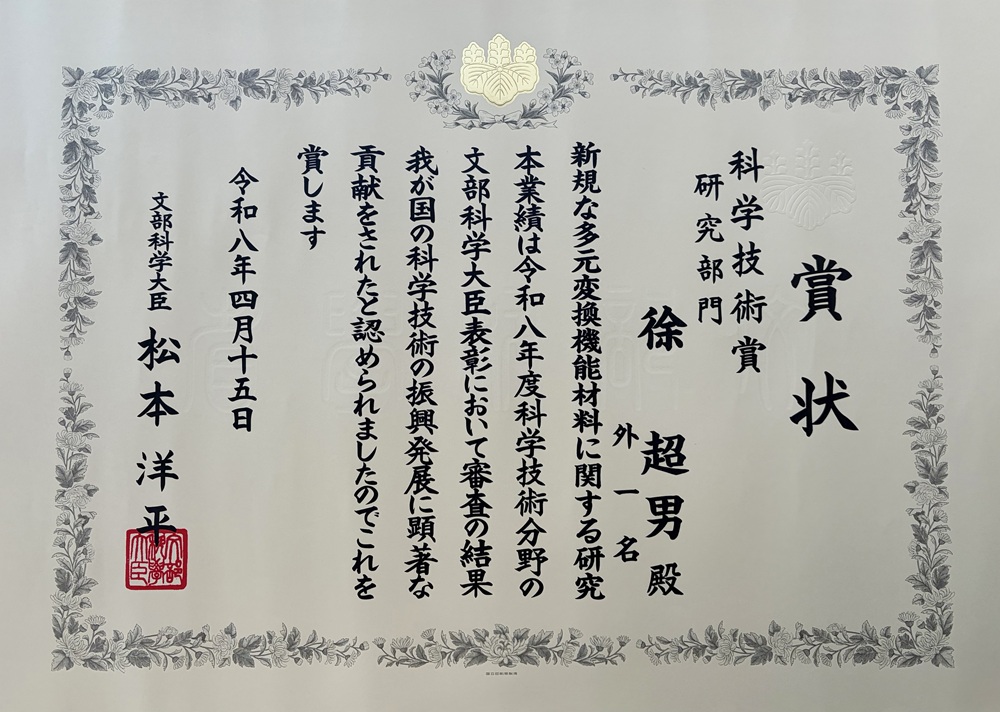 賞状
科学技術賞
研究部門
徐超男殿
外一名
新規な多元変換機能材料に関する研究
本業績は令和八年度科学技術分野の
文部科学大臣表彰において審査の結果
我が国の科学技術の振興発展に顕著な
貢献をされたと認められましたのでこれを
賞します
令和八年四月十五日
文部科学大臣 松本洋平